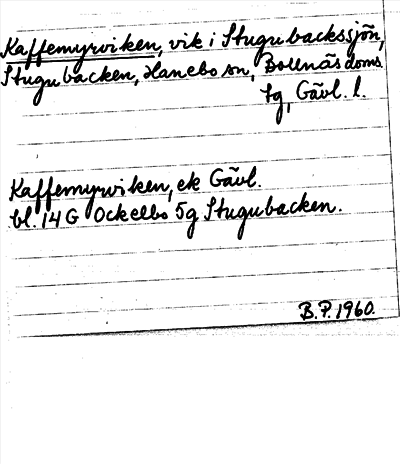 Kaffemyrviken, vik i Stugubackssjön,
Stugubacken, Hanebo sn, Bollnäs doms
tg, Gävl. l.
Kaffemyrviken, ek Gävl.
bl. 14 G Ockelbo 5g Stugubacken.
B.P. 1960.